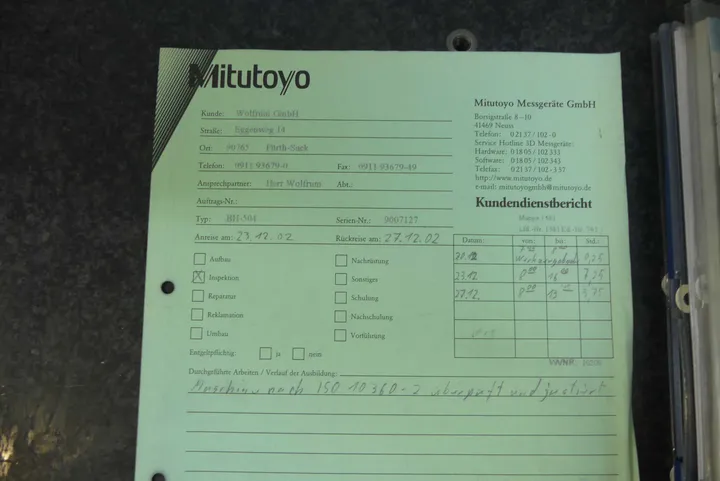 Mitutoyo
Kunde: Wolfrum GmbH
Straße: Eggenweg 14
Ort: 90765 Fürth-Sack
Telefon: 0911 93679-0 Fax: 0911 93679-49
Ansprechpartner: Herr Wolfrum Abt.:
Auftrags-Nr.:
Typ: BH-504 Serien-Nr.: 9007127
Anreise am: 23.12.02 Rückreise am: 27.12.02
Mitutoyo Messgeräte GmbH
Borsigstraße 8-10
41469 Neuss
Telefon: 0 21 37 / 102-0
Service Hotline 3D Messgeräte:
Hardware: 0 18 05 / 102 333
Software: 0 18 05 / 102 343
Telefax: 0 21 37 / 102 - 337
http://www.mitutoyo.de
e-mail: mitutoyogmbh@mitutoyo.de
Kundendienstbericht
Datum: von: bis: Std.:
20.12 0,25
23.12. 8 00 16 7,25
27.12. 8 00
Aufbau Nachrüstung
X Inspektion Sonstiges
Reparatur Schulung
Reklamation Nachschulung
Umbau Vorführung
Entgeltpflichtig: ja nein
Durchgeführte Arbeiten / Verlauf der Ausbildung:
Maschine nach ISO 10360-2 überprüft und justiert